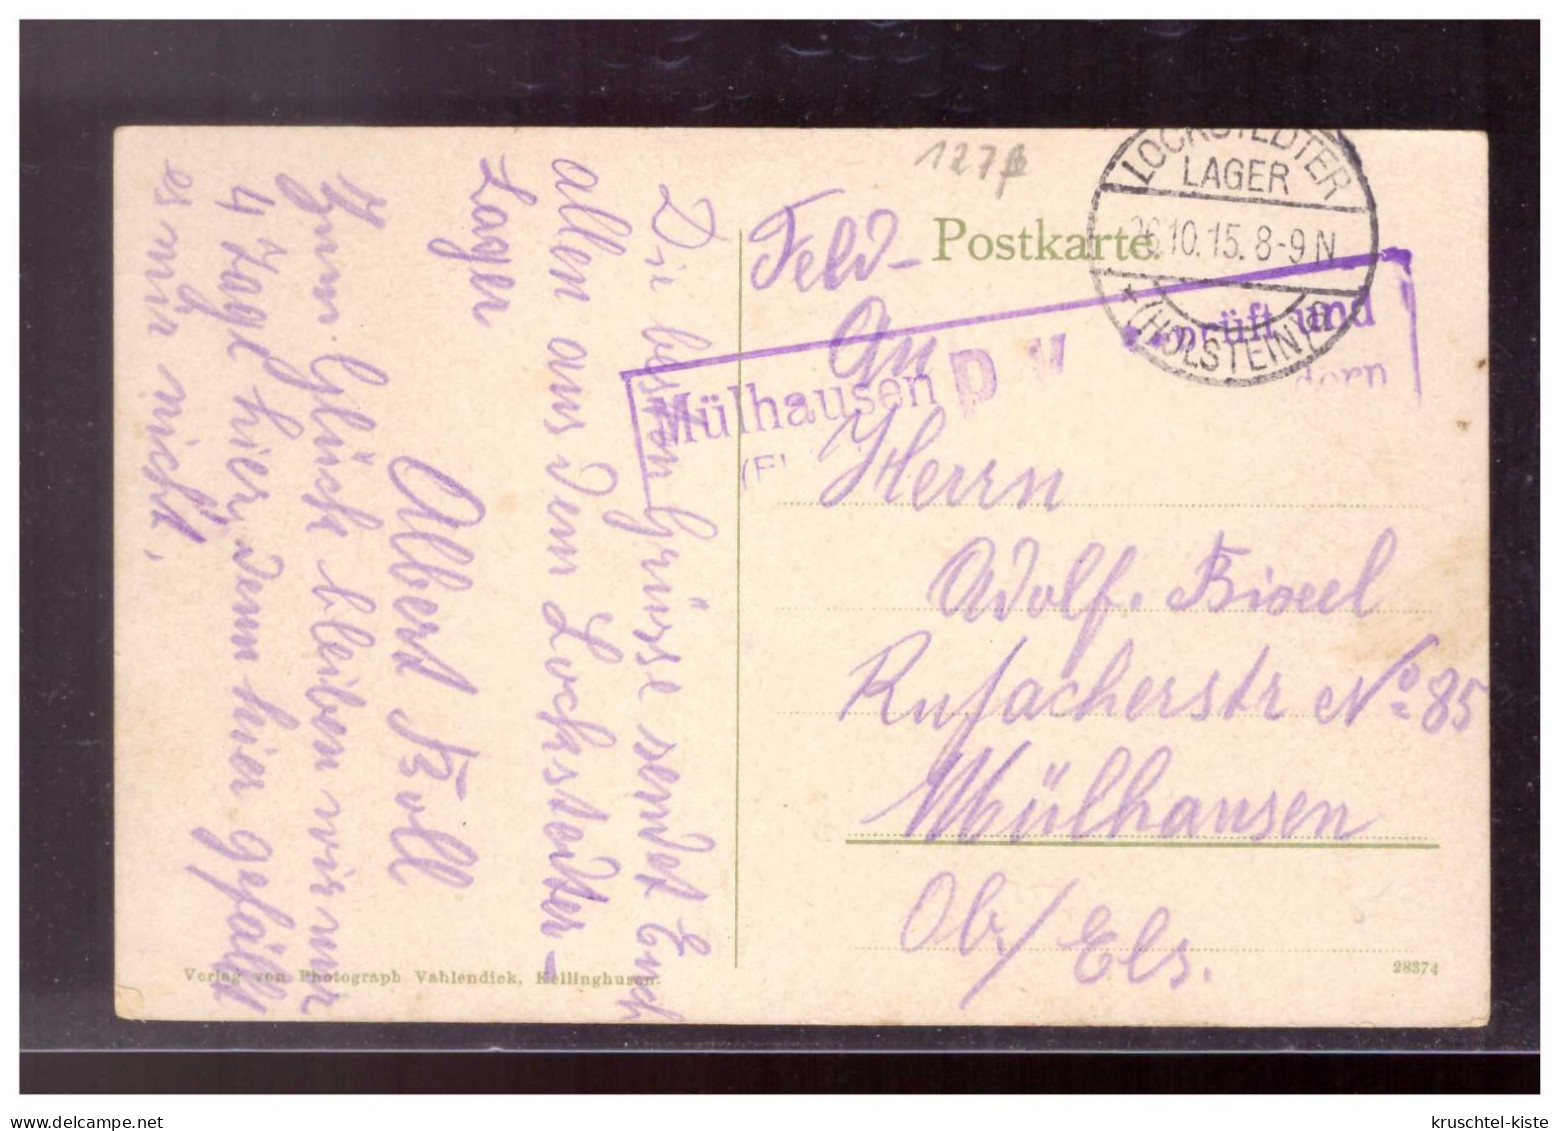 127
LOCKSTEDTER
LAGER
26.10.15.8-9N
*(HOLSTEIN)a
Feld-
Postkarte
An
Mülhausen P. v prüft und
(El
dern
Herrn
Adolf.
Rufacherstr No 85
Mülhausen
Ob/Els.
Die besten Grüsse sendet Euch
allen aus dem Lockstedter-
Lager
Albert Boll
Zum Glück bleiben wir nur
4 Tage hier, denn hier gefällt
es mir nicht,
Verlag von Photograph Vahlendick, Kellinghusen.
28374
kruschtel-kiste
www.delcampe.net